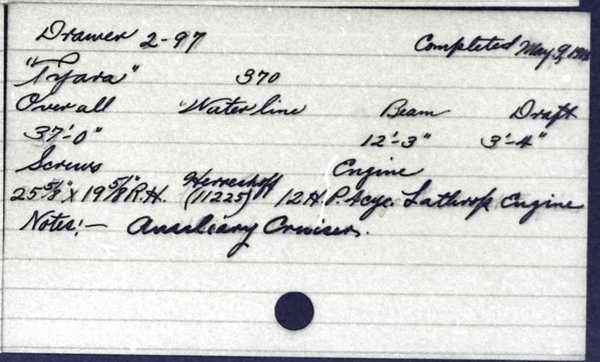 Drawer 2-97 Completed May 9,
"Tyara" 370
Over all Water line Beam Draft
37'-0" 12'-3" 3'-4"
Screws Herreshoff Engine
25 5/8" x 19 5/8" R.H. (11225) 12 H.P. 4cyc. Lathrop Engine
Notes:- Auxiliary Cruiser.